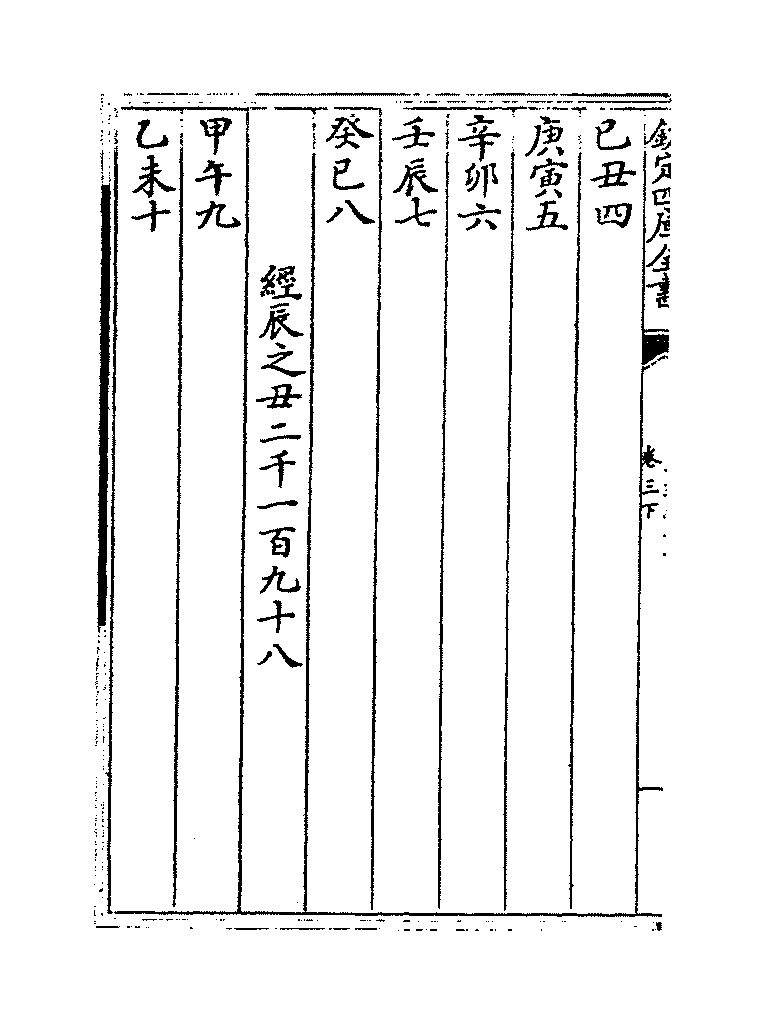 欽定四庫全書
卷三下
己丑四
庚寅五
辛卯六
壬辰七
癸巳八
經辰之丑二千一百九十八
甲午九
乙未十